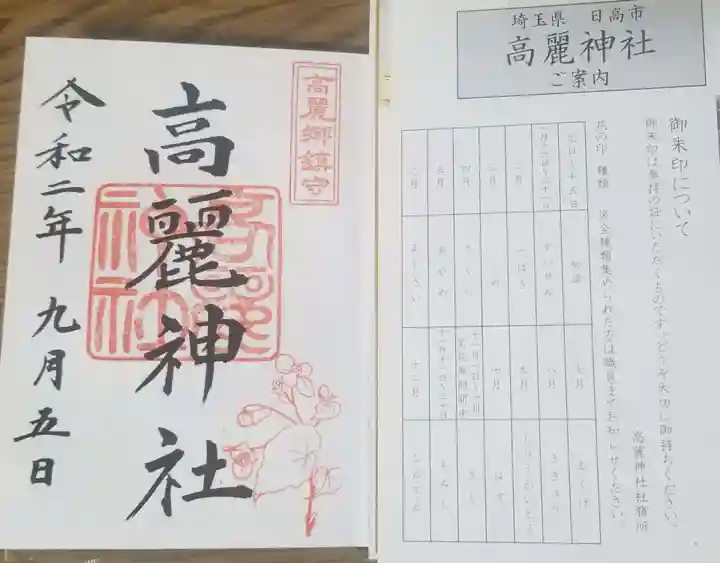 高麗郷鎮守
高麗神社
令和二年 九月五日
埼玉県 日高市
高麗神社
ご案内
御朱印について
御朱印は参拝の証にいただくものです。どうぞ大切に御持ちください。
高麗神社社務所
花の印 種類 ※全種類集められた方は職員までお知らせください。
元日〜十五日 初詣 七月 むくげ
すいせん 八月 ききょう
二月 つばき 九月 しゅうかいどう
三月 十月 はぎ
四月 さくら きく
五月 あやめ もみじ
六月 あじさい 十二月 なんてん